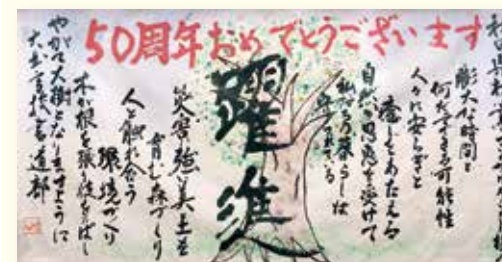 50周年おめでとうございます
膨大な時間と
何だってできる可能性
人々に安らぎと
癒しをあたえる
自然の恩恵を受けて
私たちの暮らしは
躍進
災害に強い美土を
育む森づくり
人と触れ合う
環境づくり
木が根を張り枝をのばし
やがて大樹となりますように
書道部